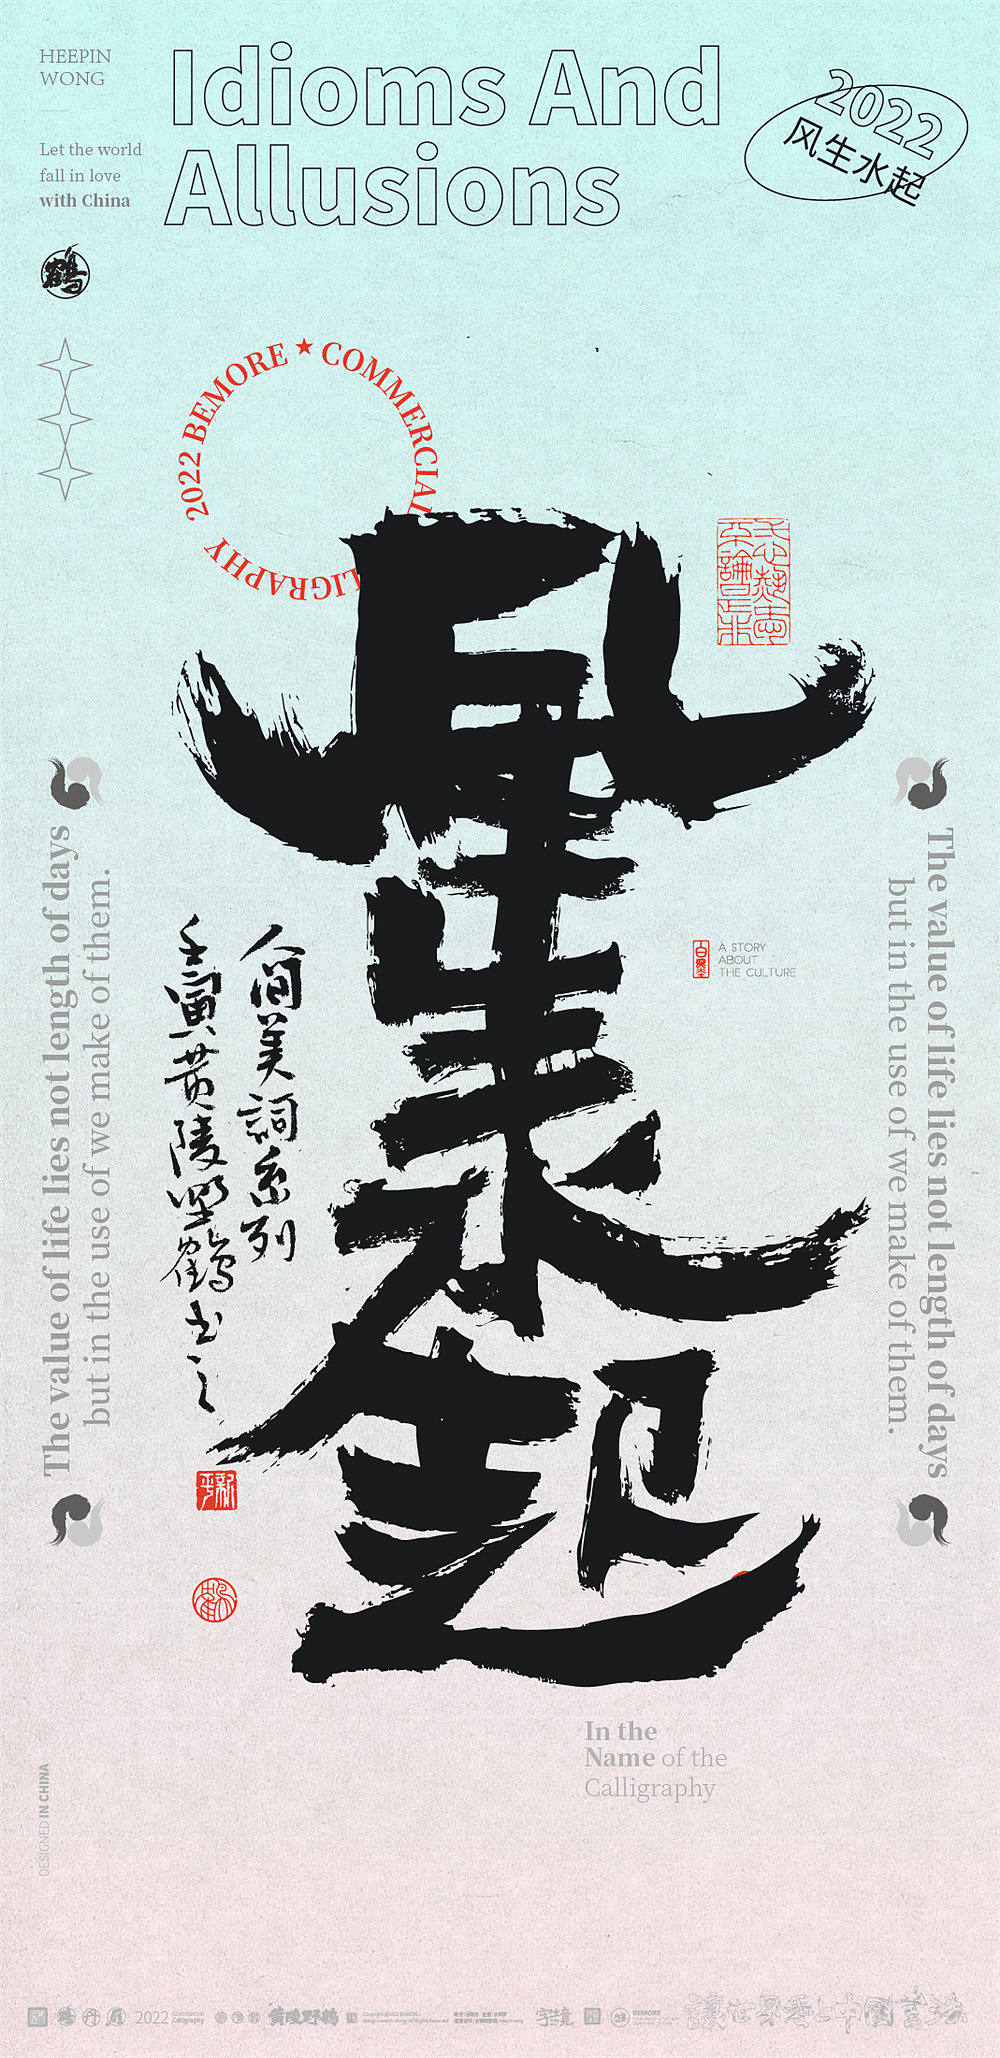 HEEPIN
WONG
Let the world
fall in love
with China
Idioms And
Allusions
2022
风生水起
鹤
2022 BEMORE ★ COMMERCIAL
LIGRAPHY
风生水起
A STORY
ABOUT
THE CULTURE
人间美詞系列
壬寅黄陵野鶴书之
The value of life lies not length of days
but in the use of we make of them.
The value of life lies not length of days
but in the use of we make of them.
In the
Name of the
Calligraphy
DESIGNED IN CHINA
2022
Commercial
Calligraphy
黄陵野鹤
字境
BEMORE
讓世界愛上中國書法